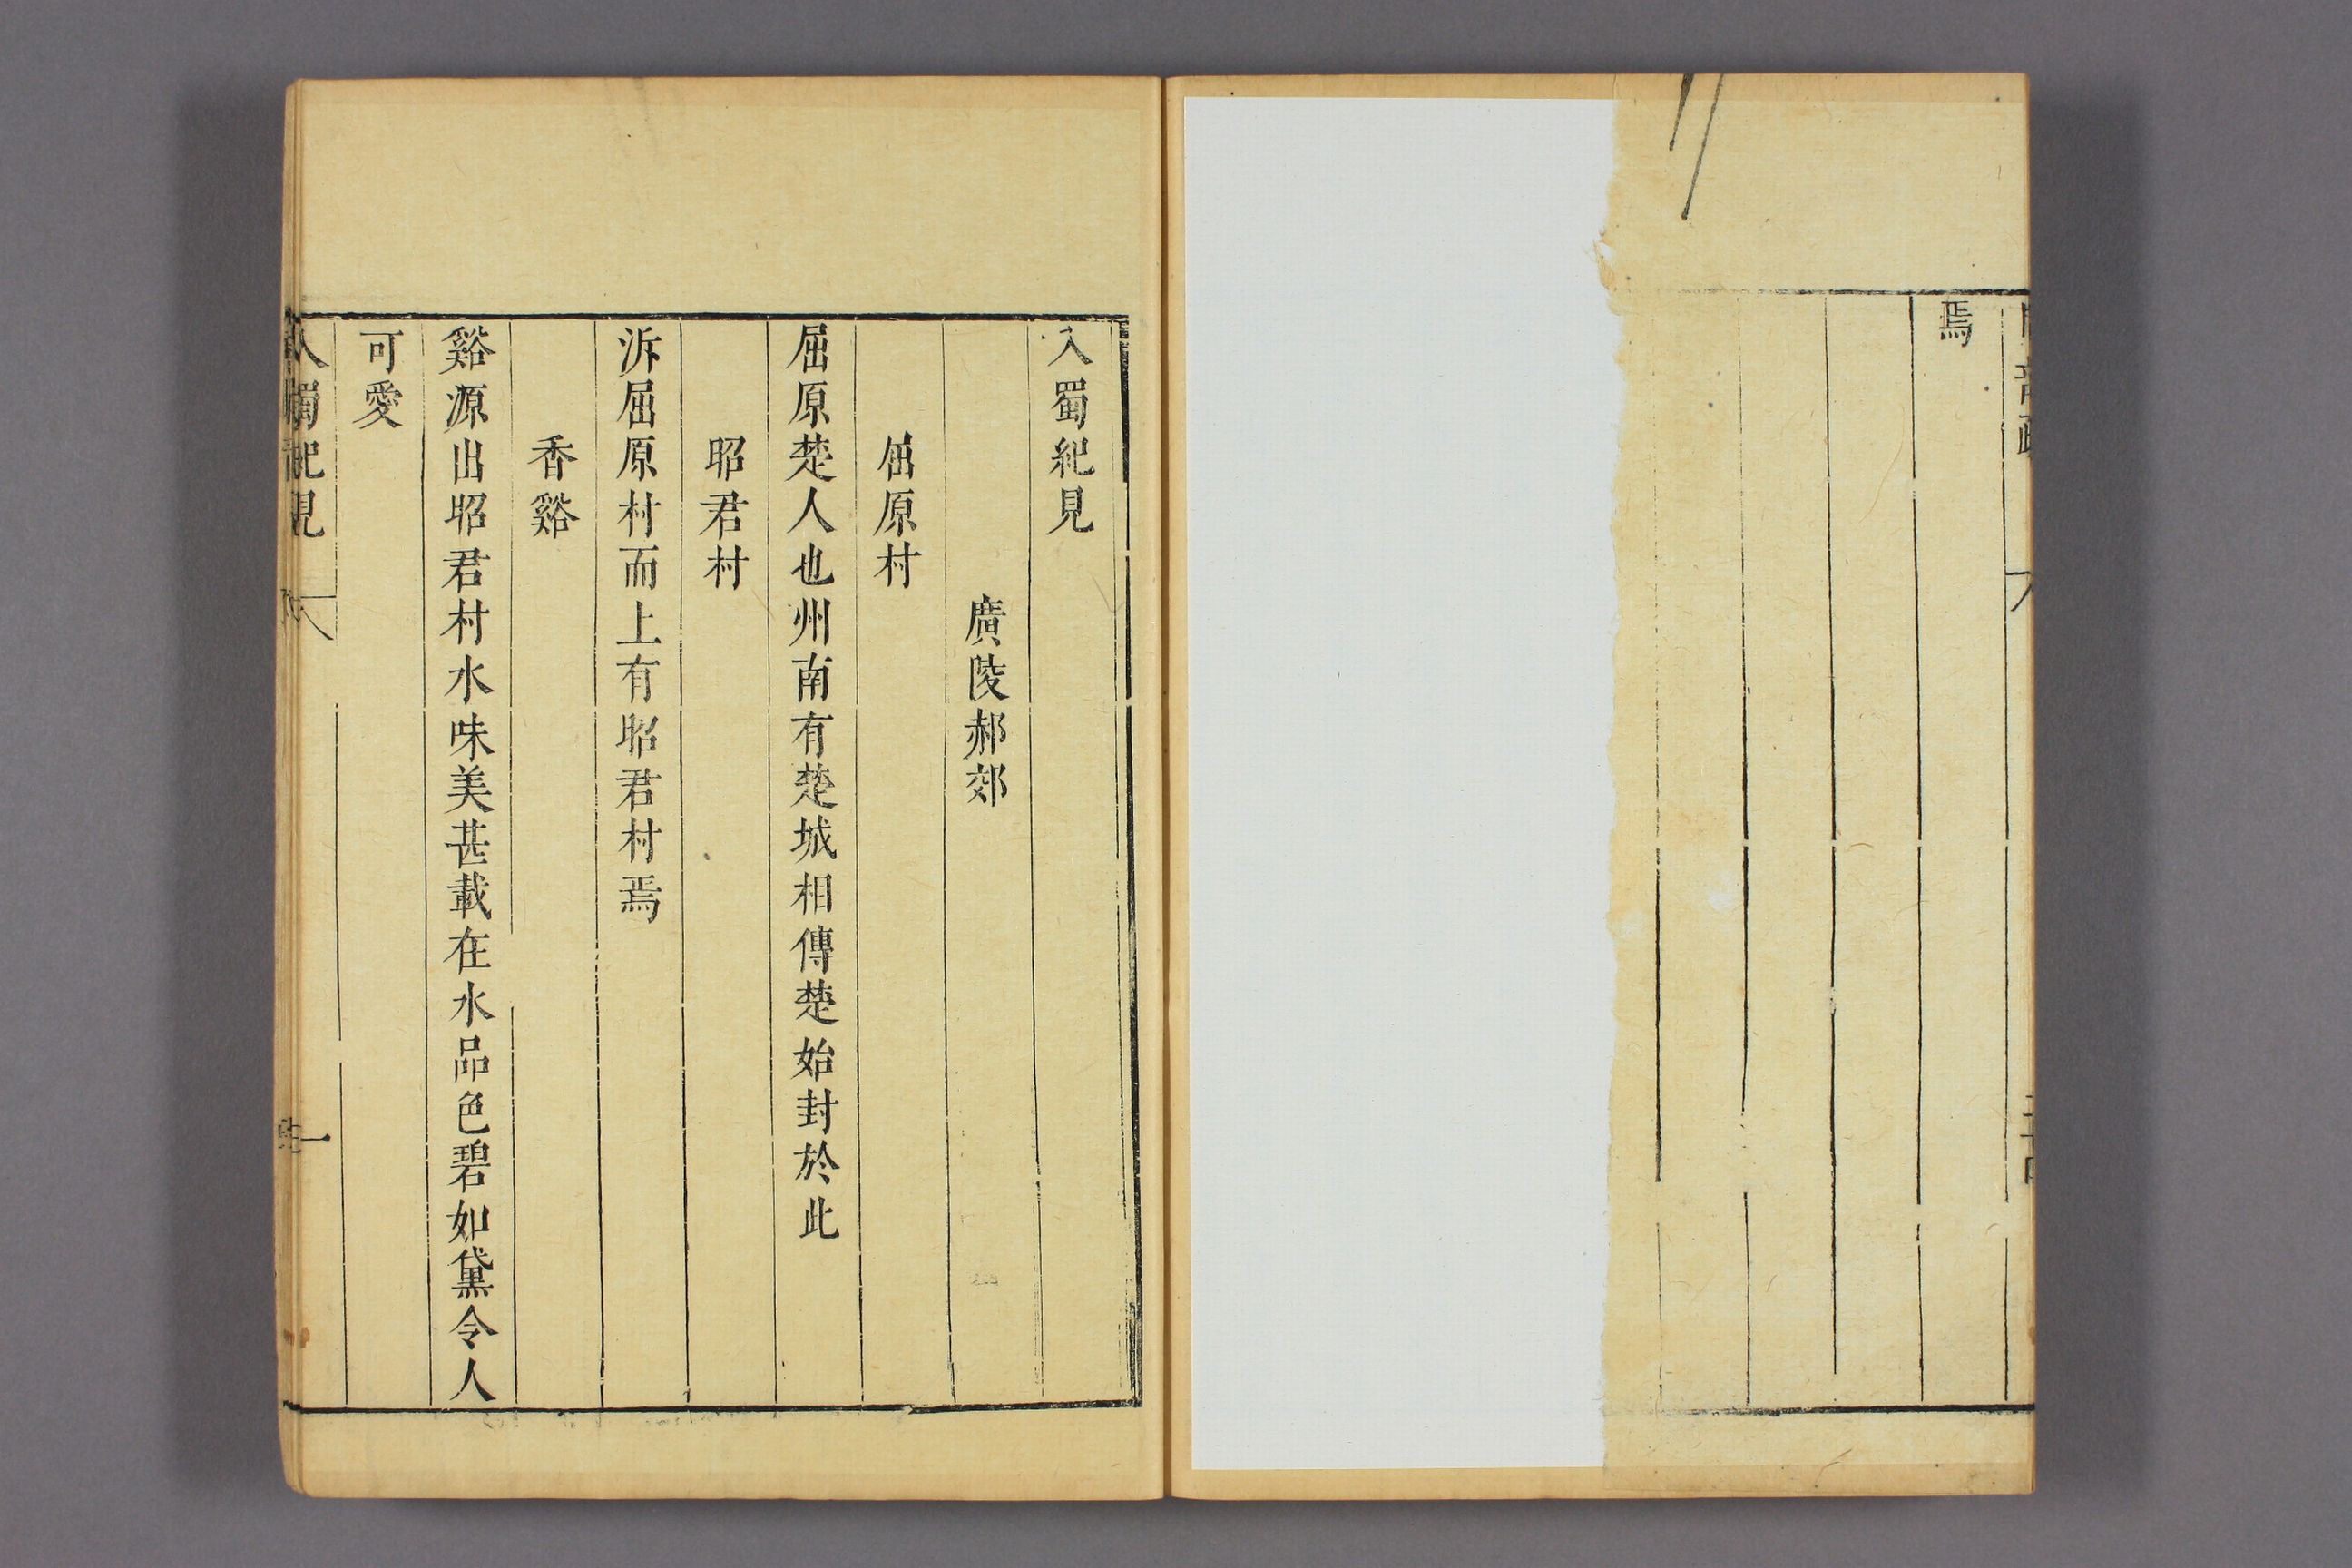 焉
入蜀紀見
廣陵郝郊
屈原村
屈原楚人也州南有楚城相傳楚始封於此
昭君村
泝屈原村而上有昭君村焉
香谿
谿源出昭君村水味美甚載在水品色碧如黛令人
可愛
入蜀紀見
一